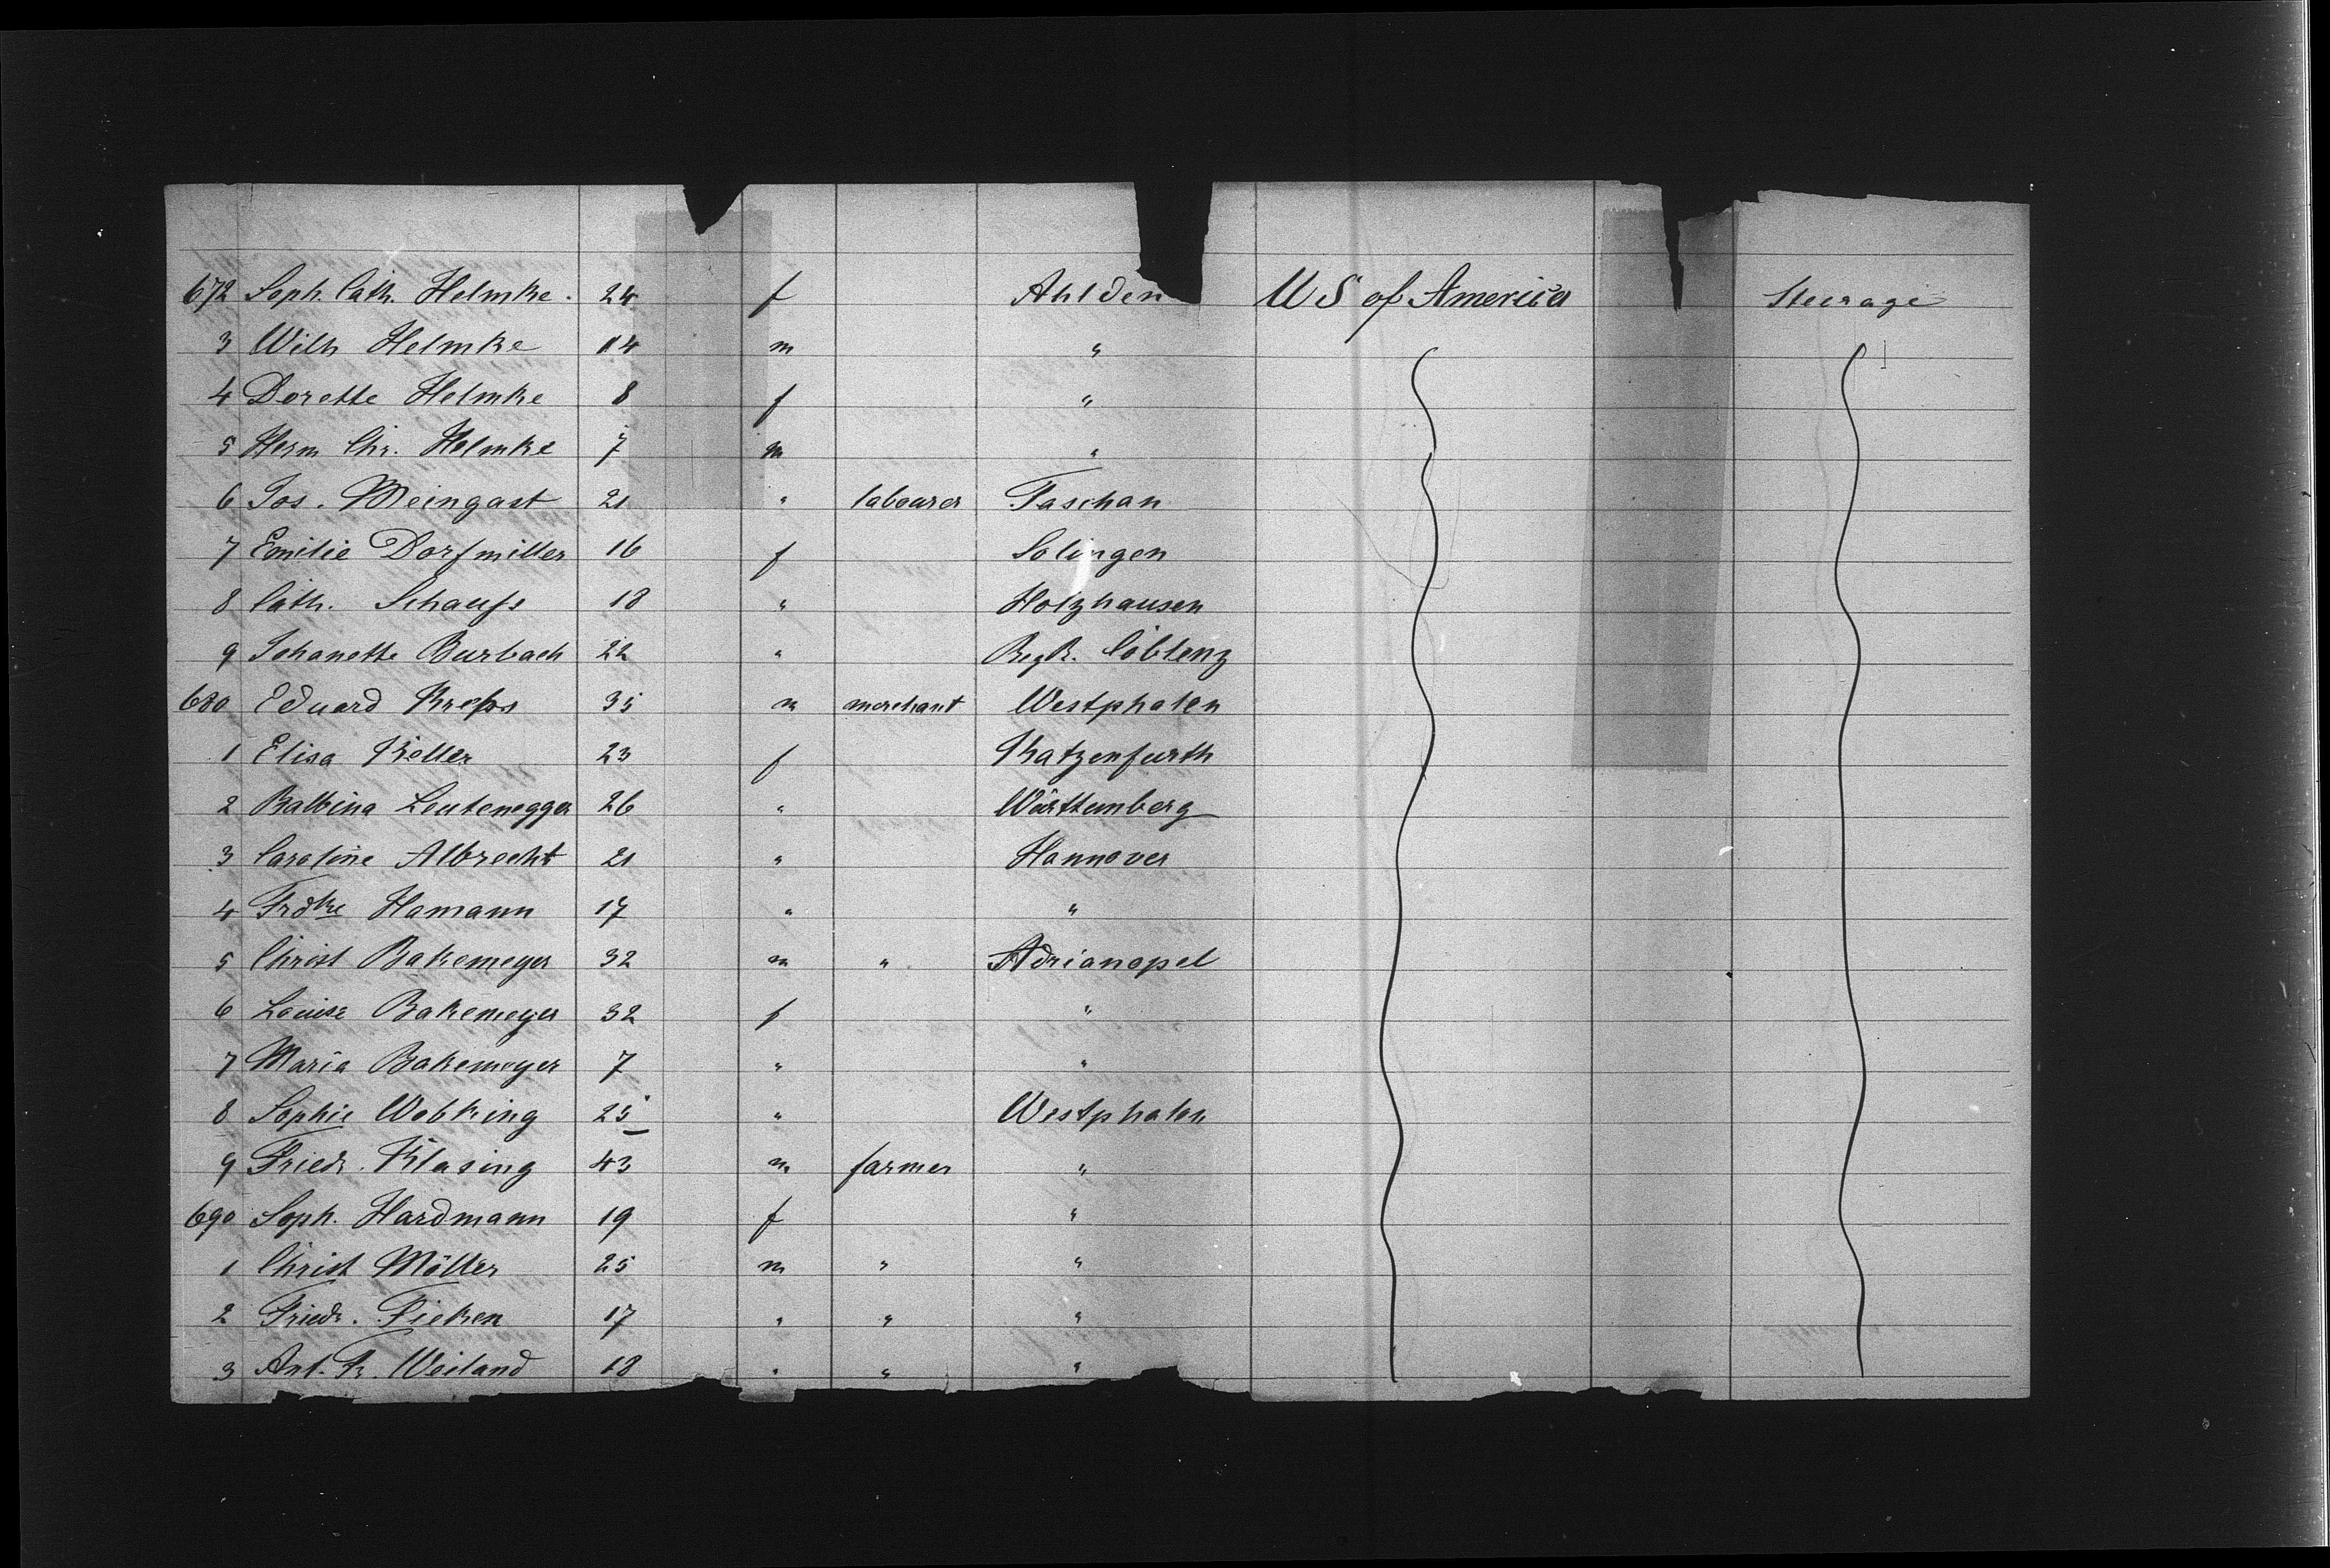 672 Soph. Cath. Helmke. 24 f Ahlden US of America Steerage
3 Wilh Helmke 14 m "
4 Dorette Helmke 8 f "
5 Herm Chr. Helmke 7 m "
6 Jos. Weingast 21 " labourer Taschan
7 Emilie Dorfmiller 16 f Solingen
8 Cath. Schaufs 18 " Holzhausen
9 Johanette Burbach 22 " Coblenz
680 Eduard Kreps 35 m merchant Westphalen
1 Elisa Keller 23 f Katzenfurth
2 Balbina Leutenegger 26 " Württemberg
3 Caroline Albrecht 21 " Hannover
4 Frdke Hamann 17 " "
5 Christ Bakemeyer 32 m " Adrianopel
6 Louise Bakemeyer 32 f "
7 Maria Bakemeyer 7 " "
8 Sophie Wobking 25 " Westphalen
9 Friedr. Klasing 43 m farmer "
690 Soph. Hardmann 19 f "
1 Christ Möller 25 m " "
2 Friedr. Fieken 17 " " "
3 Ant. Fr. Weiland 18 " " "